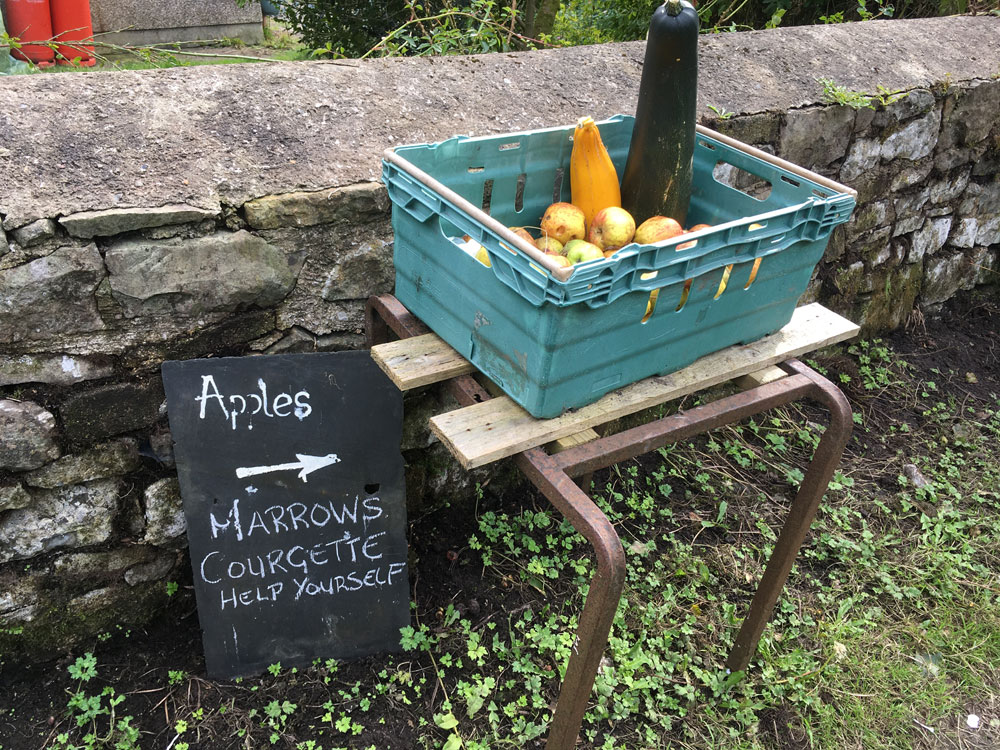 Apples
MARROWS
COURGETTE
HELP YOURSELF